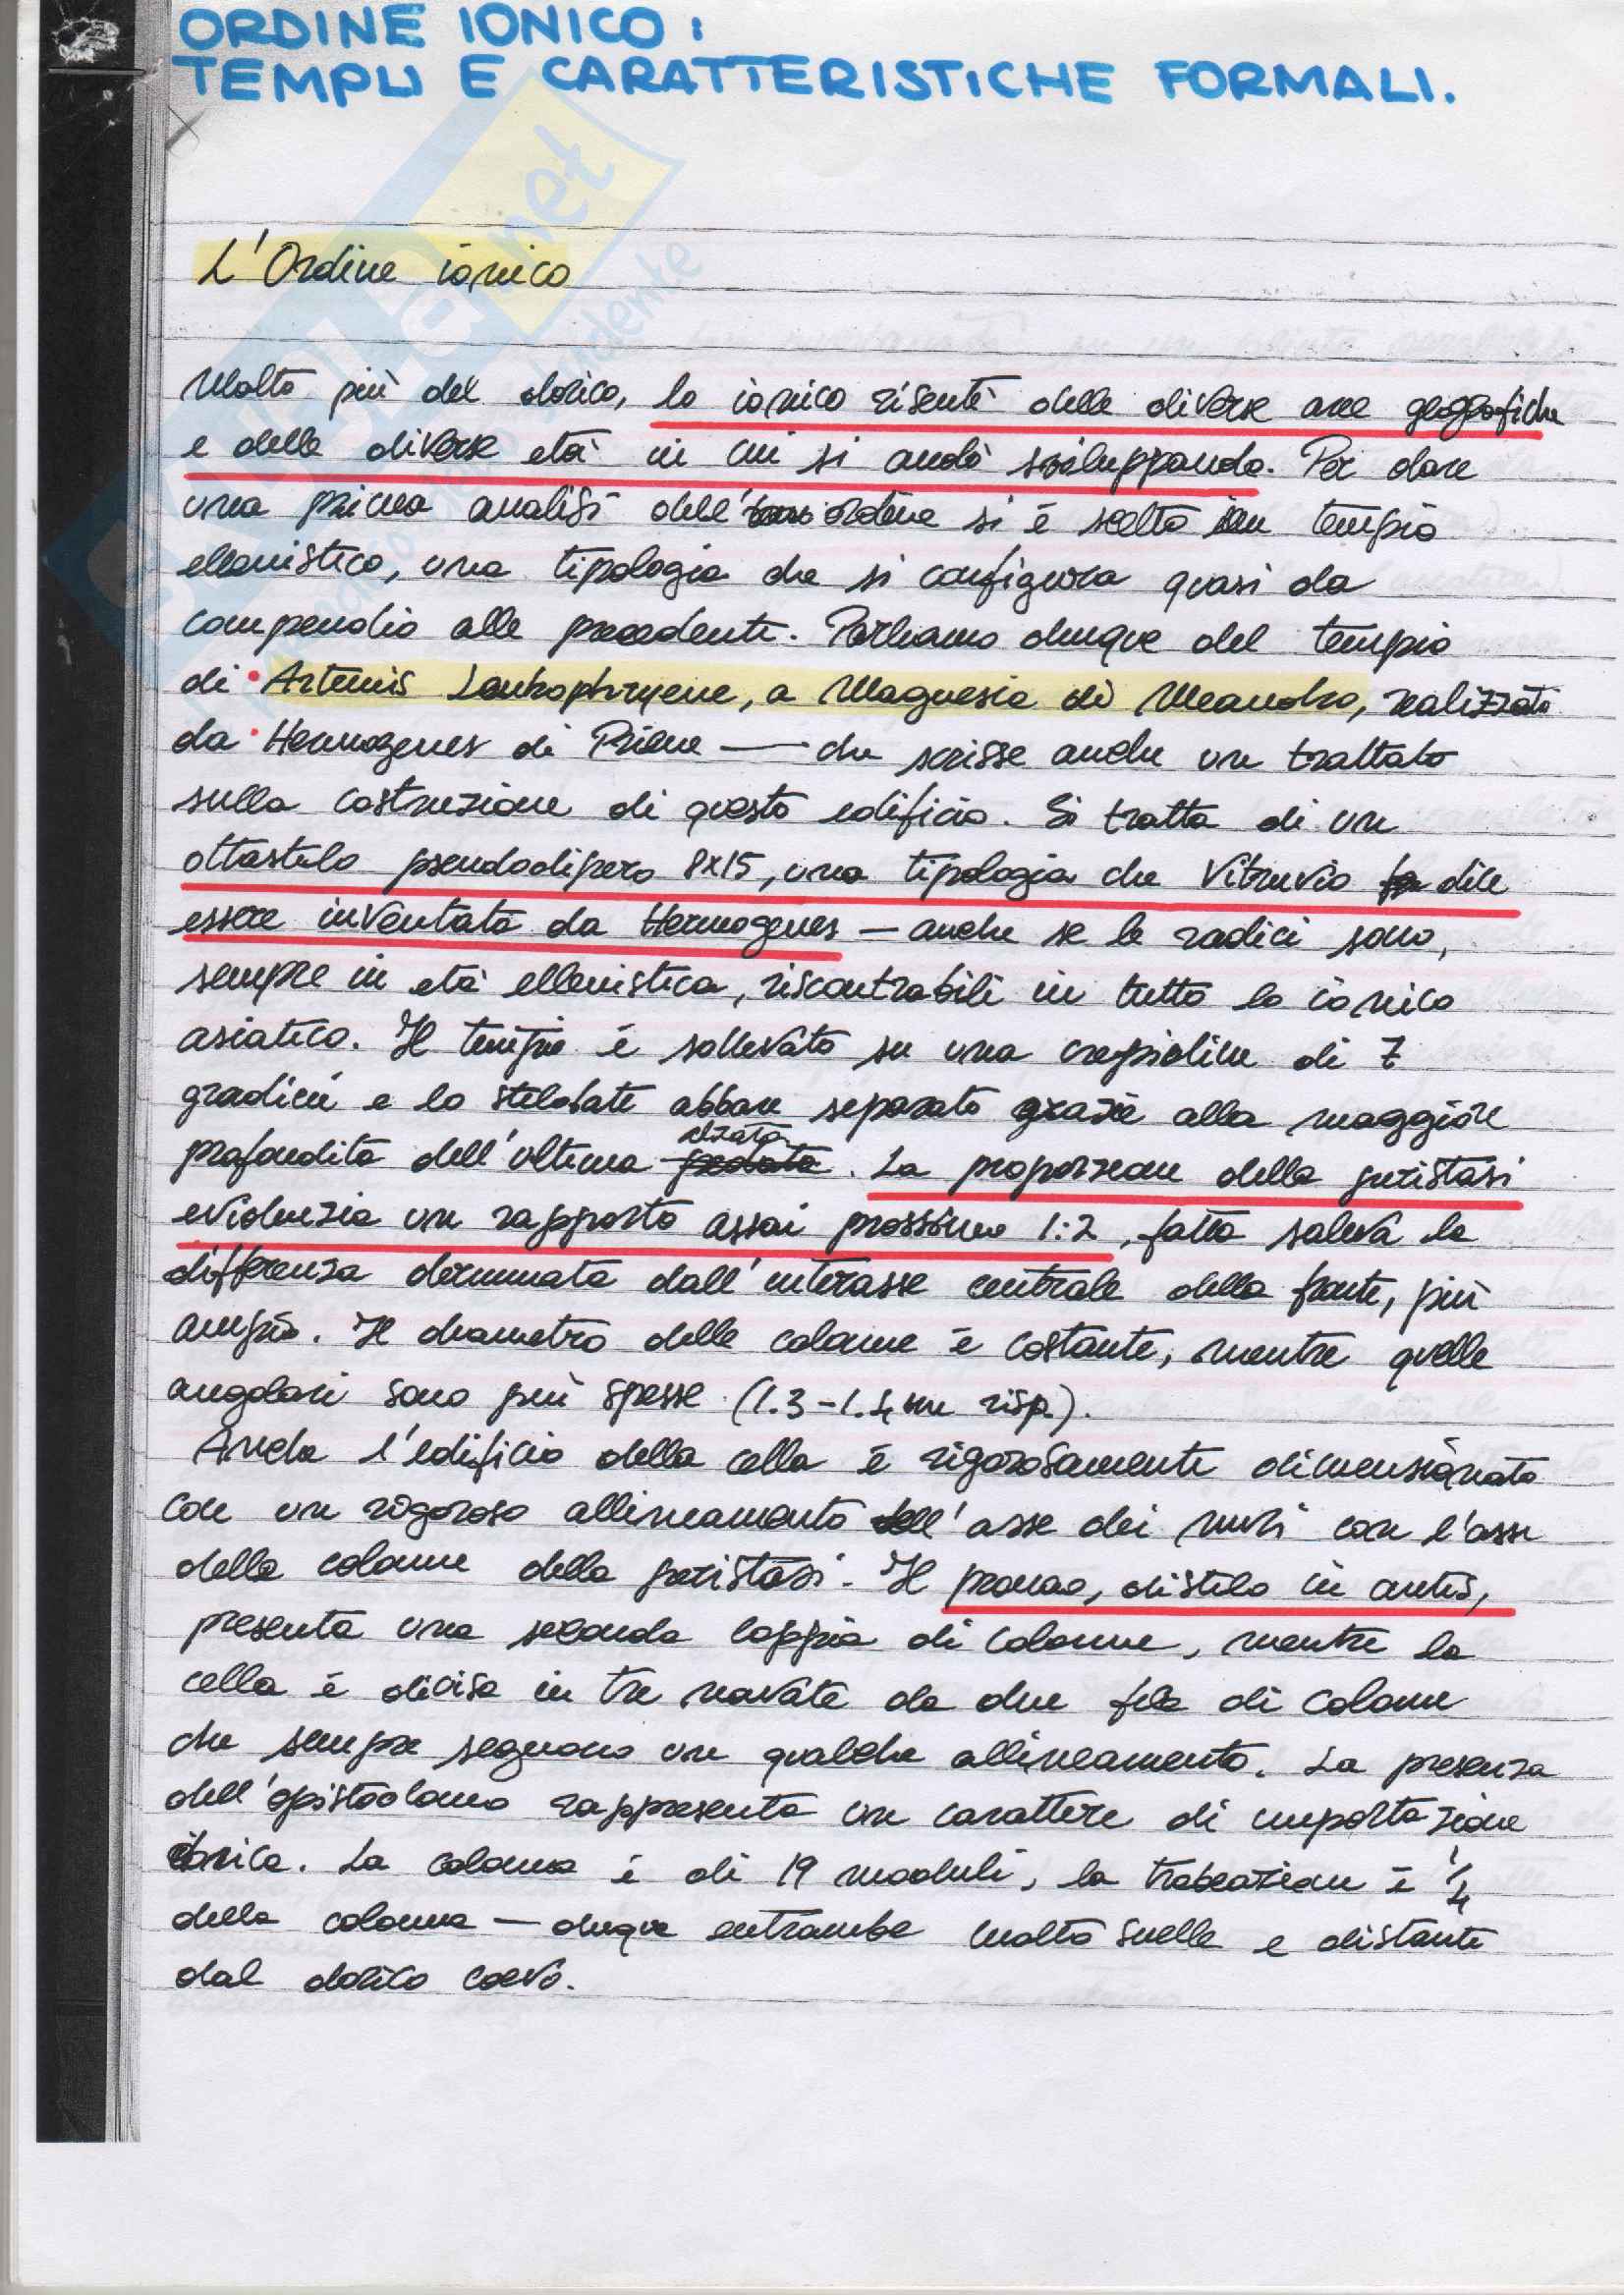 ORDINE IONICO:
TEMPLI E CARATTERISTICHE FORMALI.
L'Ordine ionico
Molto più del dorico, lo ionico risentì delle diverse aree geografiche
e delle diverse età in cui si andò sviluppando. Per dare
una prima analisi dell'ordine si è scelto un tempio
ellenistico, una tipologia che si configura quasi da
compendio alle precedenti. Parliamo dunque del tempio
di Artemis Leukophryene, a Magnesia di Meandro, realizzato
da Hermogenes di Priene — che scrisse anche un trattato
sulla costruzione di questo edificio. Si tratta di un
ottastilo pseudodiptero 8x15, una tipologia che Vitruvio dice
essere inventata da Hermogenes — anche se le radici sono,
sempre in età ellenistica, riscontrabili in tutto lo ionico
asiatico. Il tempio è sollevato su una crepidine di 7
gradini e lo stilobate appare separato grazie alla maggiore
profondità dell'ultima alzata. La proporzione della peristasi
evidenzia un rapporto assai prossimo 1:2, fatta salva la
differenza derminata dall'interasse centrale della fronte, più
ampio. Il diametro delle colonne è costante, mentre quelle
angolari sono più spesse (1.3-1.4 m risp.).
Anche l'edificio della cella è rigorosamente dimensionato
con un rigoroso allineamento dell'asse dei muri con l'asse
delle colonne della peristasi. Il pronao, distilo in antis,
presenta una seconda coppia di colonne, mentre la
cella è divisa in tre navate da due file di colonne
che sempre seguono un qualche allineamento. La presenza
dell'opistodomo rappresenta un carattere di importazione
dorica. La colonna è di 19 moduli, la trabeazione è 1/4
della colonna — dunque entrambe molto snelle e distanti
dal dorico coevo.
evola net